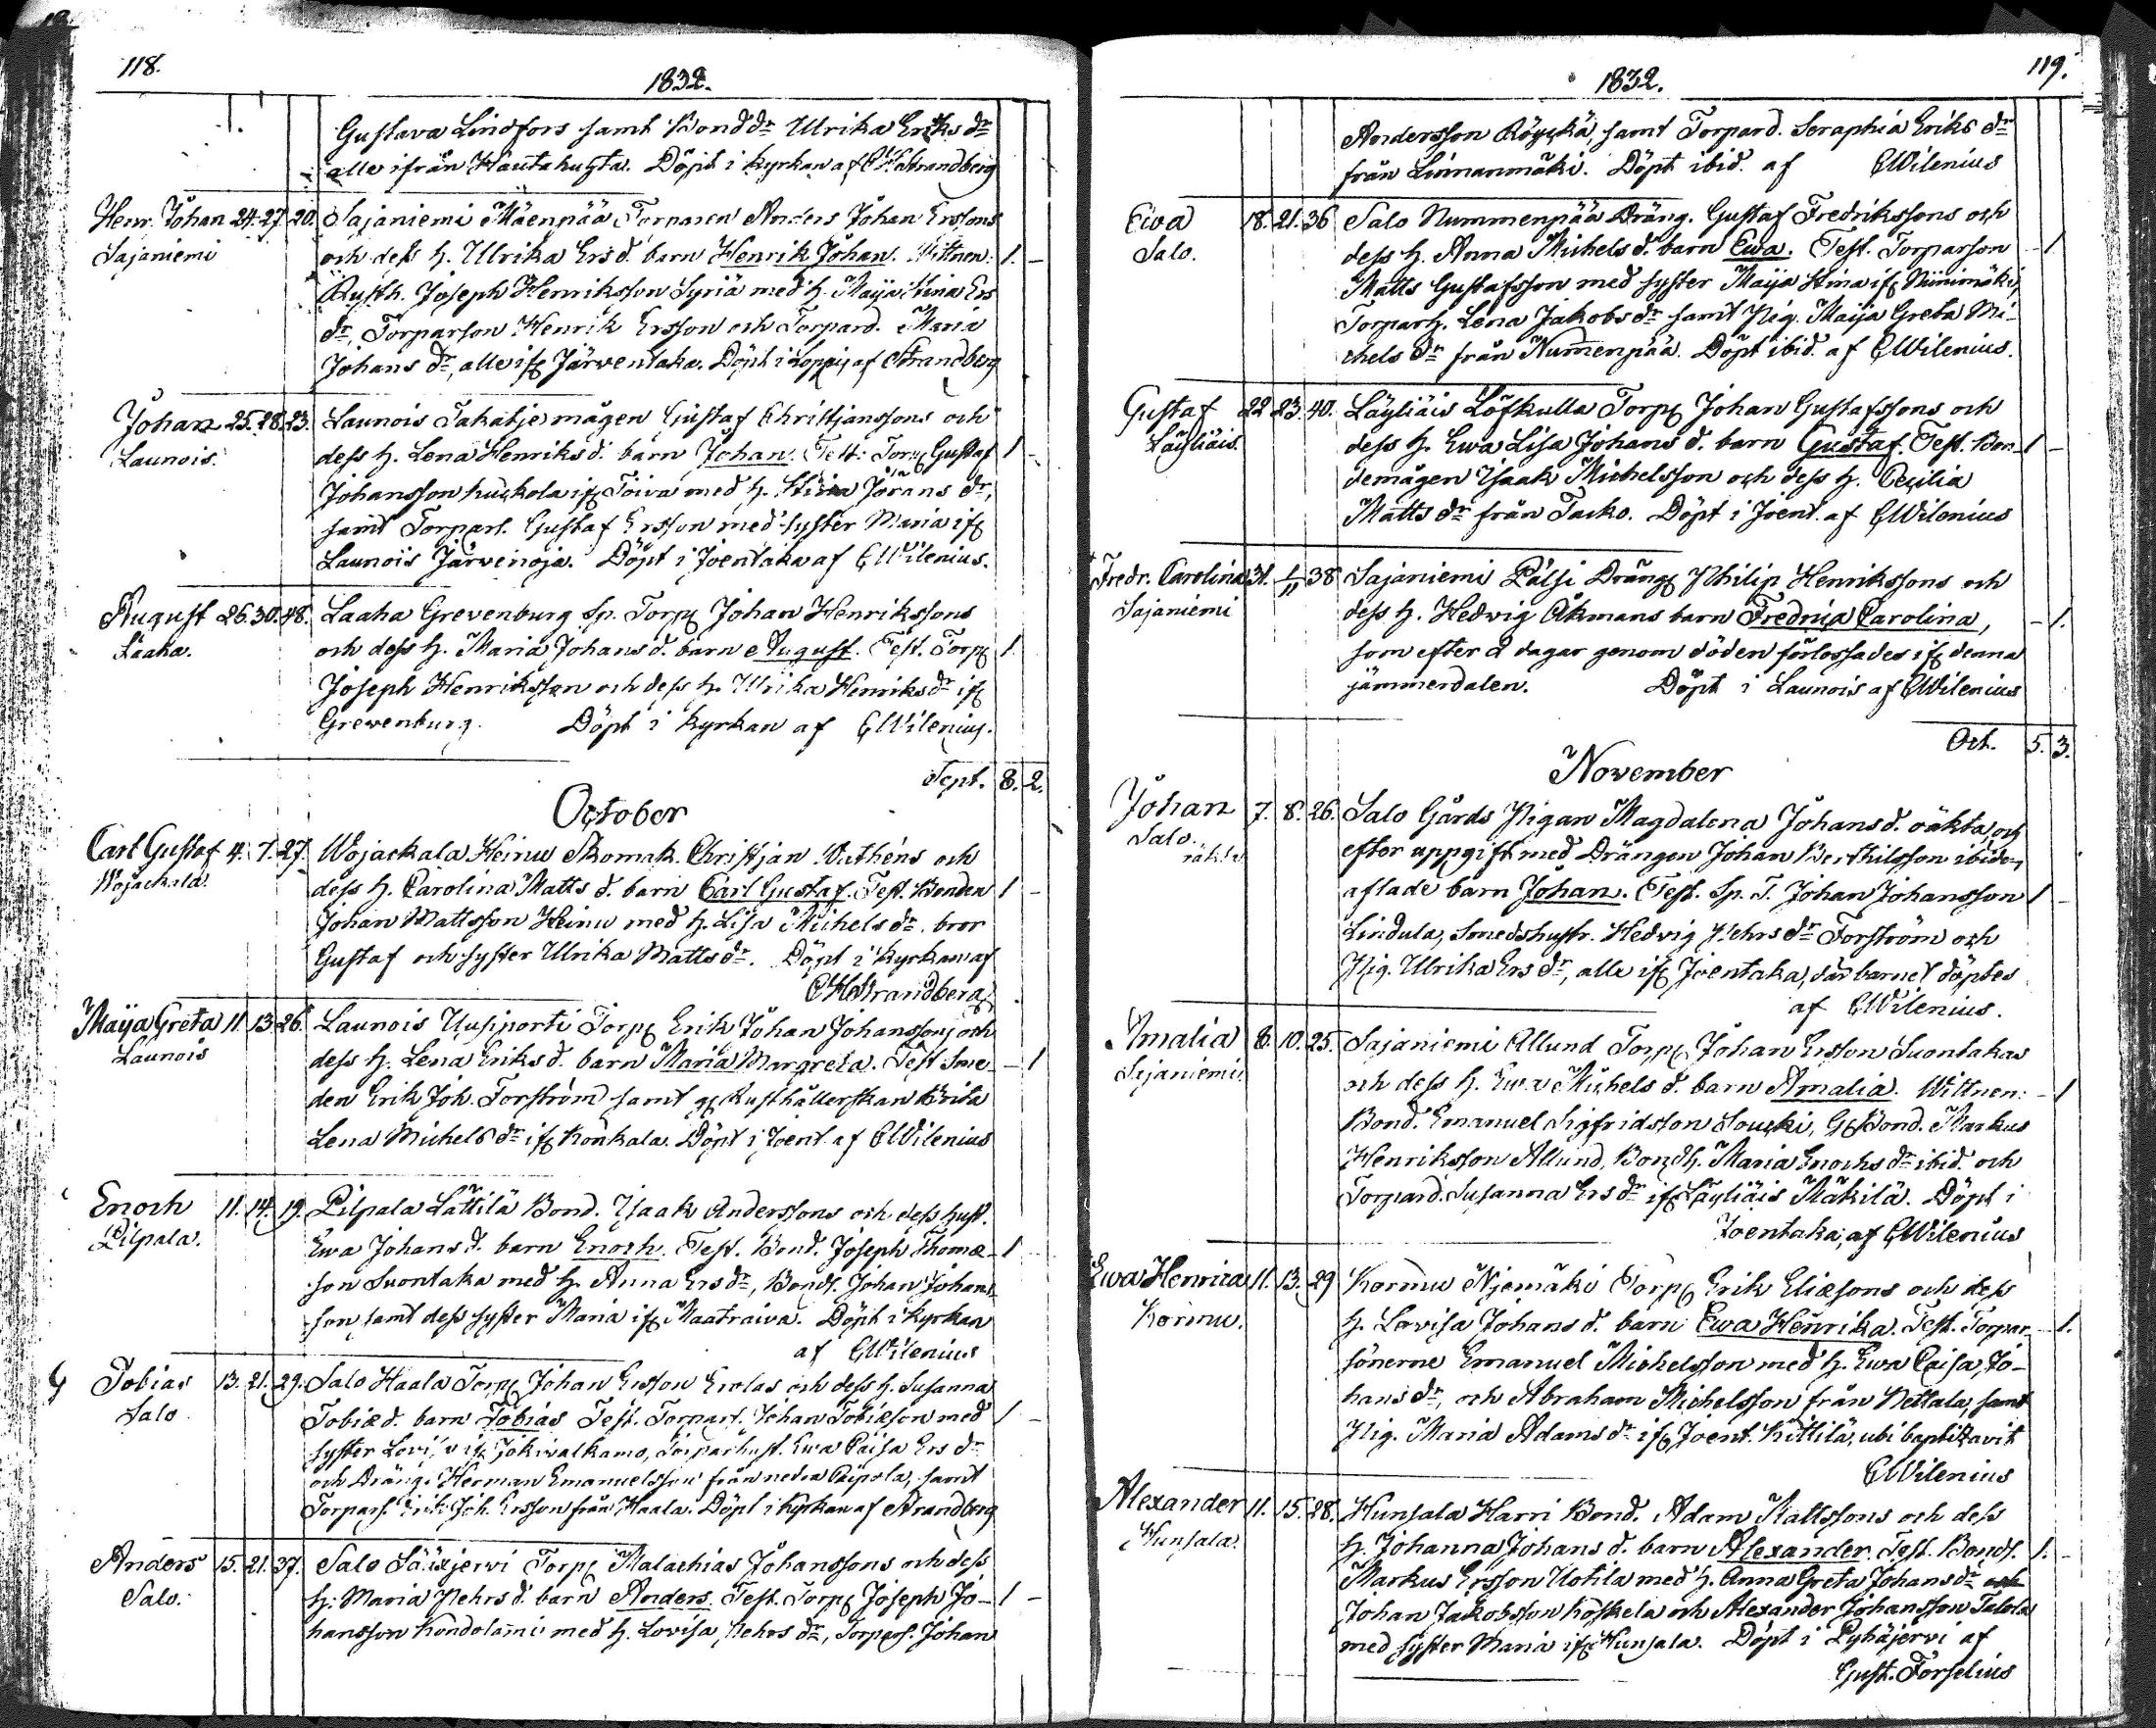 118.
1832.
Gustava Lindfors samt Bondd:r Ulrika Eriks d:r
alle ifrån Hautakugta. Döpt i kyrkan af Strandberg
Henr. Johan 24. 27. 20. Sajaniemi Mäenpää Torparen Anders Johan Erssons
Sajaniemi och dess h. Ulrika Ers d. barn Henrik Johan. Wittnen: 1. -
Rusth. Joseph Henriksson Syriä med h. Maija Stina Ers
d:r, Torparson Henrik Ersson och Torpard. Maria
Johans d:r, alle if: Järwentaka. Döpt i Loppis af Strandberg
Johan 25. 28. 23. Launois mågen Gustaf Christjanssons och
Launois. dess h. Lena Henriks d. barn Johan. Test: Torp: Gustaf 1 -
Johansson if: Toiva med h. Stina Jörans d:r,
samt Torpars. Gustaf Ersson med syster Maria if:
Launois Järwenoja. Döpt i Joentaka af CWilenius.
August 26. 30. 48. Laaka Grevenburg Sp. Torp: Johan Henrikssons
Laaka. och dess h. Maria Johans d. barn August. Test. Torp: 1
Joseph Henriksson och dess h. Ulrika Henriks d:r if:
Grevenburg. Döpt i kyrkan af CWilenius.
Sept. 8. 2.
October
Carl Gustaf 4. 7. 27. Wojackala Heinu Skomak. Christjan Wathéns och
Wojackala. dess h. Carolina Matts d. barn Carl Gustaf. Test. Bonden 1 -
Johan Mattsson Heinu med h. Lisa Michels d:r, bror
Gustaf och syster Ulrika Matts d:r. Döpt i kyrkan af
Strandberg
Maija Greta 11. 13. 26. Launois Uusiporti Torp: Erik Johan Johanssons och
Launois dess h. Lena Eriks d. barn Maria Margreta. Test Sme- - 1
den Erik Joh. Forström samt g: Rusthållerskan Brita
Lena Michels d:r if: Konkala. Döpt i Joent. af CWilenius
Enoch 11. 14. 19. Pilpala Lättilä Bond. Isaak Anderssons och dess hust.
Pilpala. Ewa Johans d. barn Enoch. Test. Bond. Joseph Thomæ- 1
son Suontaka med h. Anna Ers d:r, Bonds. Johan Johans-
son samt dess syster Maria if: Maatraiva. Döpt i kyrkan
af CWilenius
Tobias 13. 21. 29. Salo Haala Torp: Johan Ersson Erolas och dess h. Susanna
Salo Tobiæ d. barn Tobias Test. Torpars. Johan Tobiæson med 1 -
syster Lovisa if: Jokiwalkamo, Torparhust. Ewa Caisa Ers d:r
och Dräng. Herman Emanuelsson från nedra samt
Torpars. Erik Joh. Ersson från Haala. Döpt i kyrkan af Strandberg
Anders 15. 21. 37. Salo Sääxjervi Torp: Malachias Johanssons och dess
Salo. h. Maria Pehrs d. barn Anders. Test. Torp: Joseph Jo- 1 -
hansson Kondolammi med h. Lovisa Pehrs d:r, Torpars. Johan
119.
1832.
Andersson Röyskä, samt Torpard. Seraphia Eriks d:r
från Linnanmäki. Döpt ibid. af CWilenius
Ewa 18. 21. 36 Salo Nummenpää Dräng. Gustaf Fredrikssons och
Salo. dess h. Anna Michels d. barn Ewa. Test. Torparson - 1
Matts Gustafsson med syster Maija Stina if: Niinimäki,
Torparh. Lena Jakobs d:r samt Pig. Maija Greta Mi-
chels d:r från Nummenpää. Döpt ibid. af CWilenius.
Gustaf 22 23. 40. Läyliäis Löfkulla Torp: Johan Gustafssons och
Läyliäis. dess h. Ewa Lisa Johans d. barn Gustaf. Test. Bon- 1 -
demågen Isaak Michelsson och dess h. Cecilia
Matts d:r från Tacko. Döpt i Joent. af CWilenius
Fredr. Carolina 31. 1/11 38 Sajaniemi Pälsi Dräng: Philip Henrikssons och
Sajaniemi dess h. Hedvig Åkmans barn Fredrica Carolina, - 1.
som efter 2 dagar genom döden förlossades if: denna
jämmerdalen. Döpt i Launois af CWilenius
Oct. 5. 3.
November
Johan 7. 8. 26. Salo Gårds Pigan Magdalena Johans d. oäkta, och
Salo. oäkta efter uppgift med Drängen Johan Berthilsson ibidem,
aflade barn Johan. Test. Sp. T. Johan Johansson 1
Lindula, Smedshustr. Hedvig Pehrs d:r Forström och
Pig. Ulrika Ers d:r, alle if: Joentaka, där barnet döptes
af CWilenius.
Amalia 8. 10. 25. Sajaniemi Allund Torp: Johan Ersson Suontakas
Sajaniemi. och dess h. Ewa Michels d. barn Amalia. Wittnen: - 1
Bond. Emanuel Sigfridsson Gl: Bond. Markus
Henriksson Allund, Bondh. Maria Enochs d:r ibid. och
Torpard. Susanna Ers d:r if: Läyliäis Mäkilä. Döpt i
Joentaka, af CWilenius
Ewa Henrica 11. 13. 29 Kormu Njemäki Torp: Erik Eliæsons och dess
Kormu. h. Lovisa Johans d. barn Ewa Henrika. Test. Torpar- - 1.
sönerne Emanuel Michelsson med h. Ewa Caisa Jo-
hans d:r, och Abraham Michelsson från Nettala, samt
Pig. Maria Adams d:r if: Joent. Kittilä, ubi baptizavit
CWilenius
Alexander 11. 15. 28. Hunsala Harri Bond. Adam Mattssons och dess
Hunsala. h. Johanna Johans d. barn Alexander. Test. Bonds. 1. -
Markus Ersson Uotila med h. Anna Greta Johans d:r och
Johan Jakobsson Koskela och Alexander Johansson Talola
med syster Maria if: Hunsala. Döpt i Pyhäjervi af
Gust. Forselius